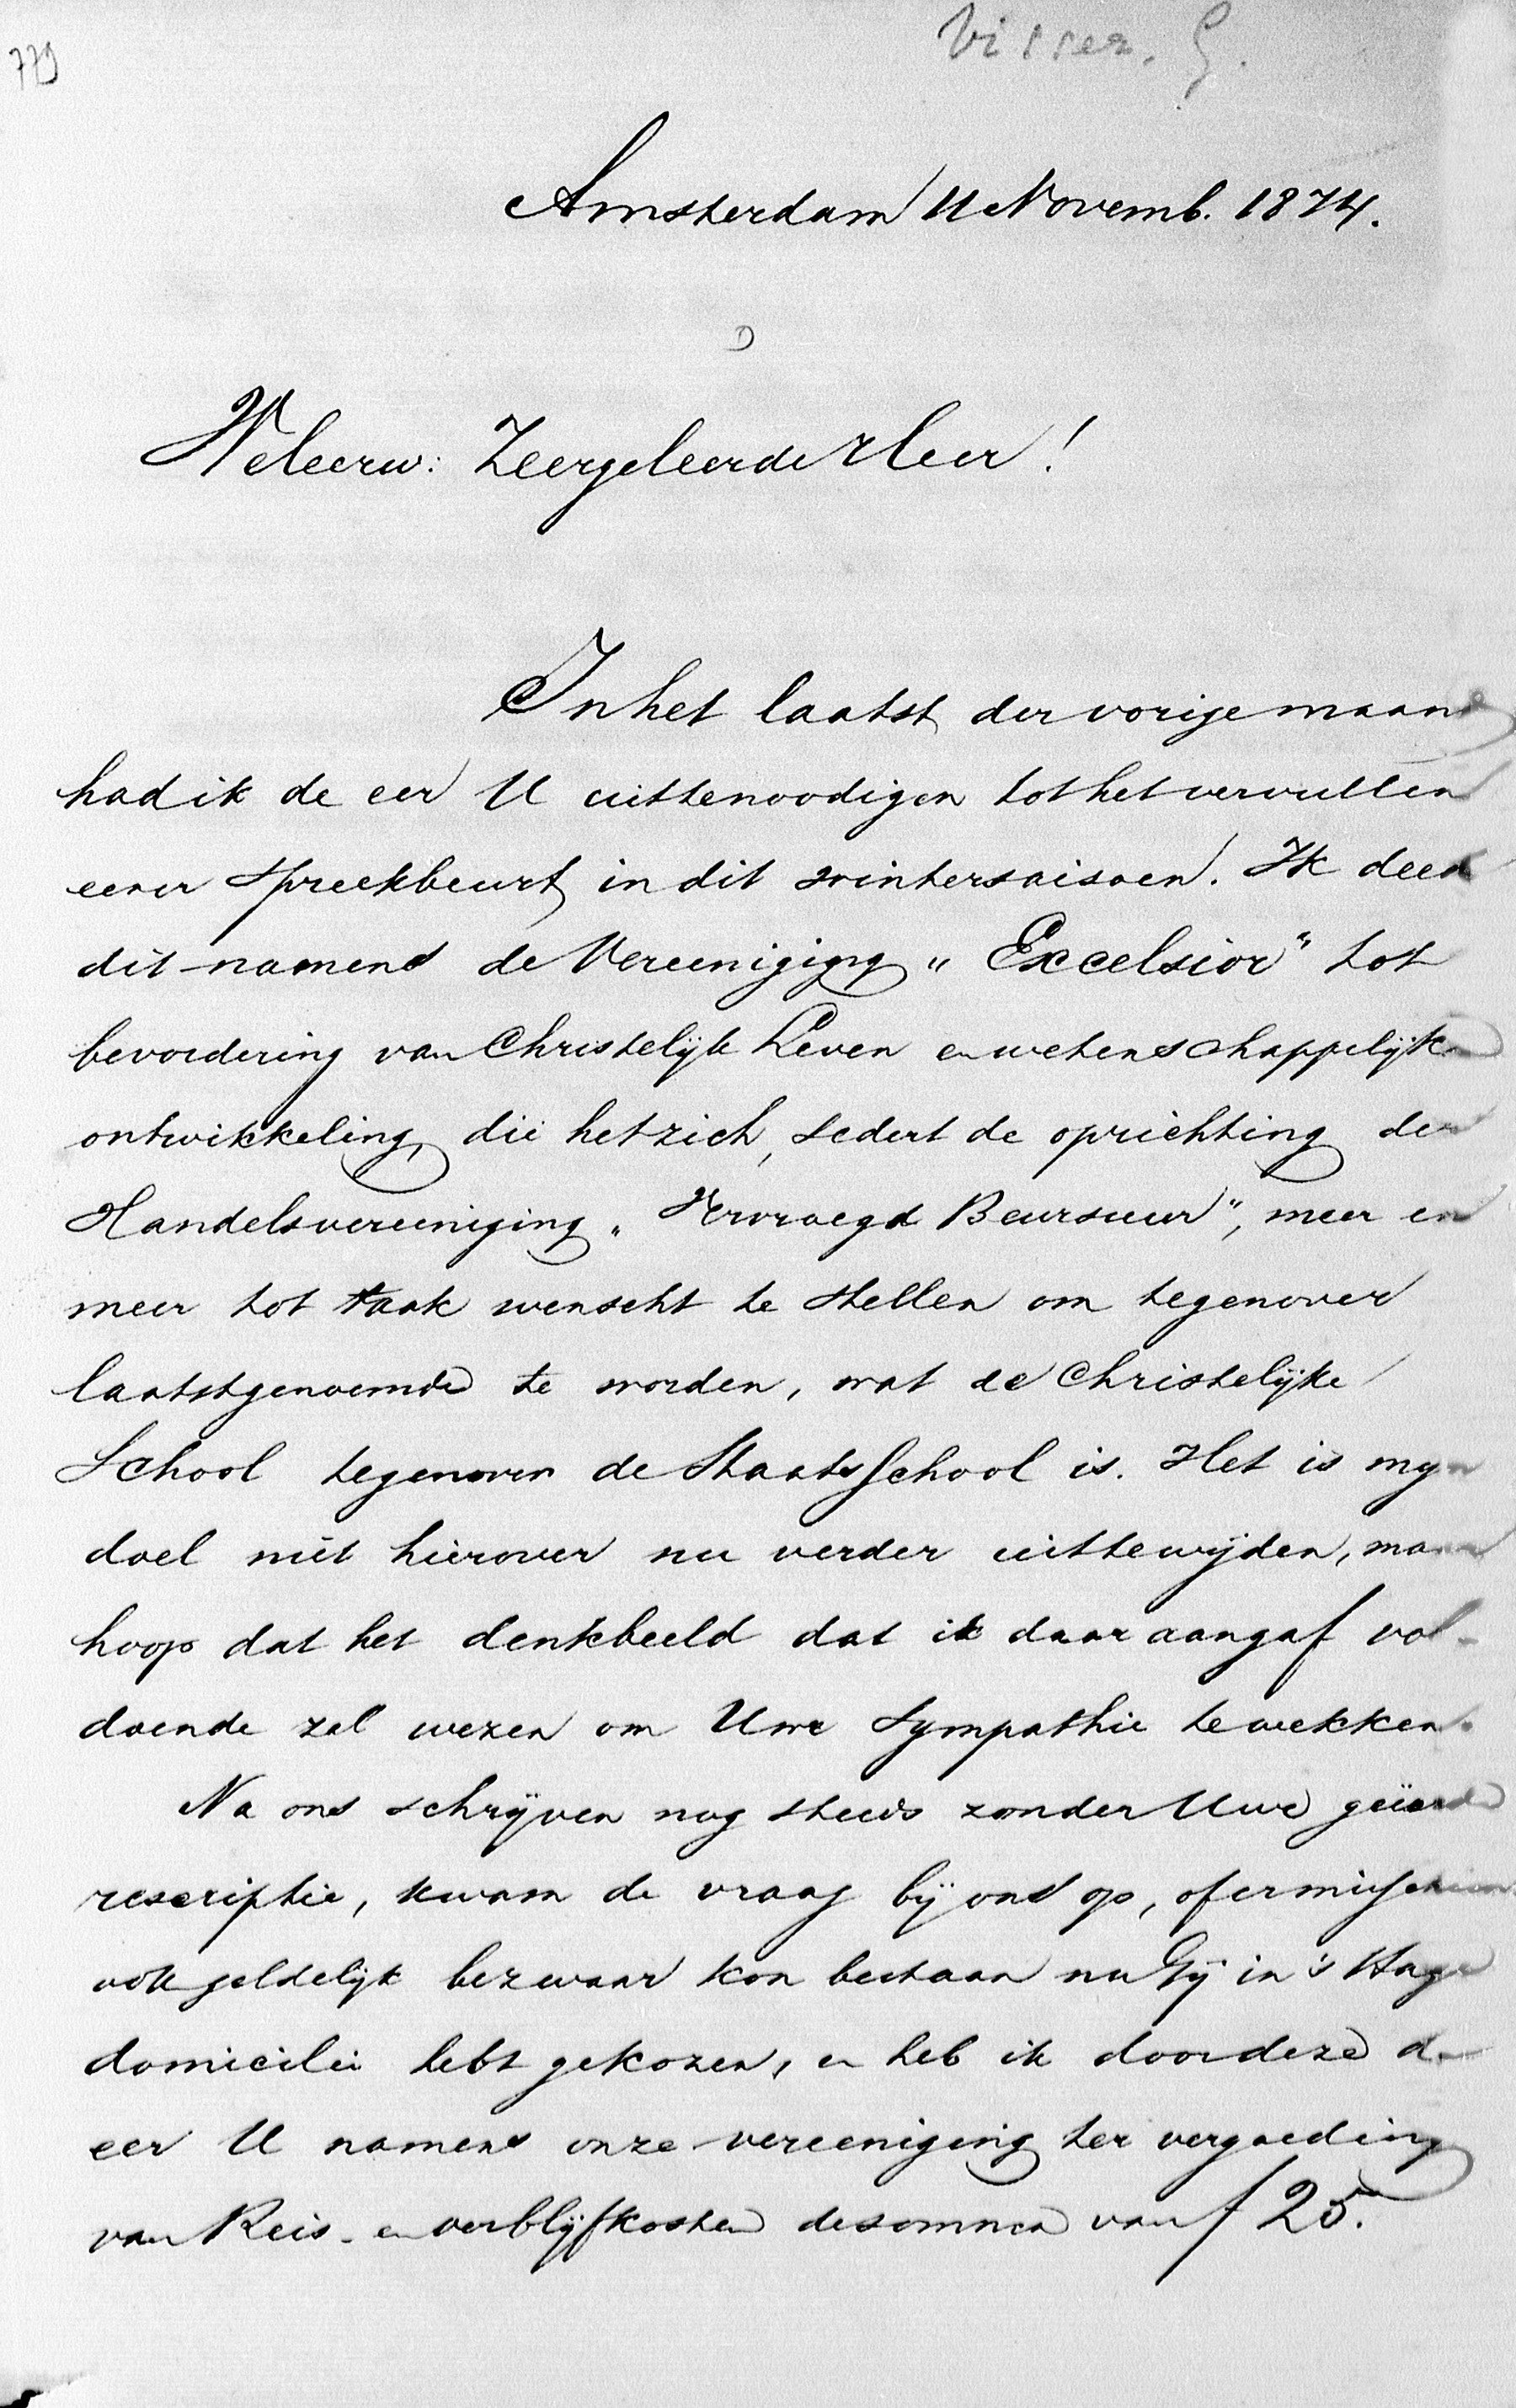 779
Visser. G.
Amsterdam 11 Novemb. 1874.
Weleerw: Zeergeleerde Heer!
In het laatst der vorige maand
had ik de eer U uittenoodigen tot het vervullen
eener spreekbeurt in dit wintersaisoen. Ik deed
dit namens de Vereeniging „Excelsior" tot
bevordering van Christelijk Leven en wetenschappelijke
ontwikkeling, die het zich, sedert de oprichting der
Handelsvereeniging „Vervroegd Beursuur", meer en
meer tot taak wenscht te stellen om tegenover
laatstgenoemde te worden, wat de Christelijke
School tegenover de Staatsschool is. Het is myn
doel niet hierover nu verder uittewijden, maar
hoop dat het denkbeeld dat ik daar aangaf vol-
doende zal wezen om Uwe sympathie te wekken.
Na ons schrijven nog steeds zonder Uwe geëerde
rescriptie, kwam de vraag bij ons op, of er misschien
ook geldelijk bezwaar kon bestaan nu Gij in 's Hage
domicilie hebt gekozen, en heb ik door deze de
eer U namens onze vereeniging ter vergoeding
van Reis- en verblijfkosten de somma van f 25.